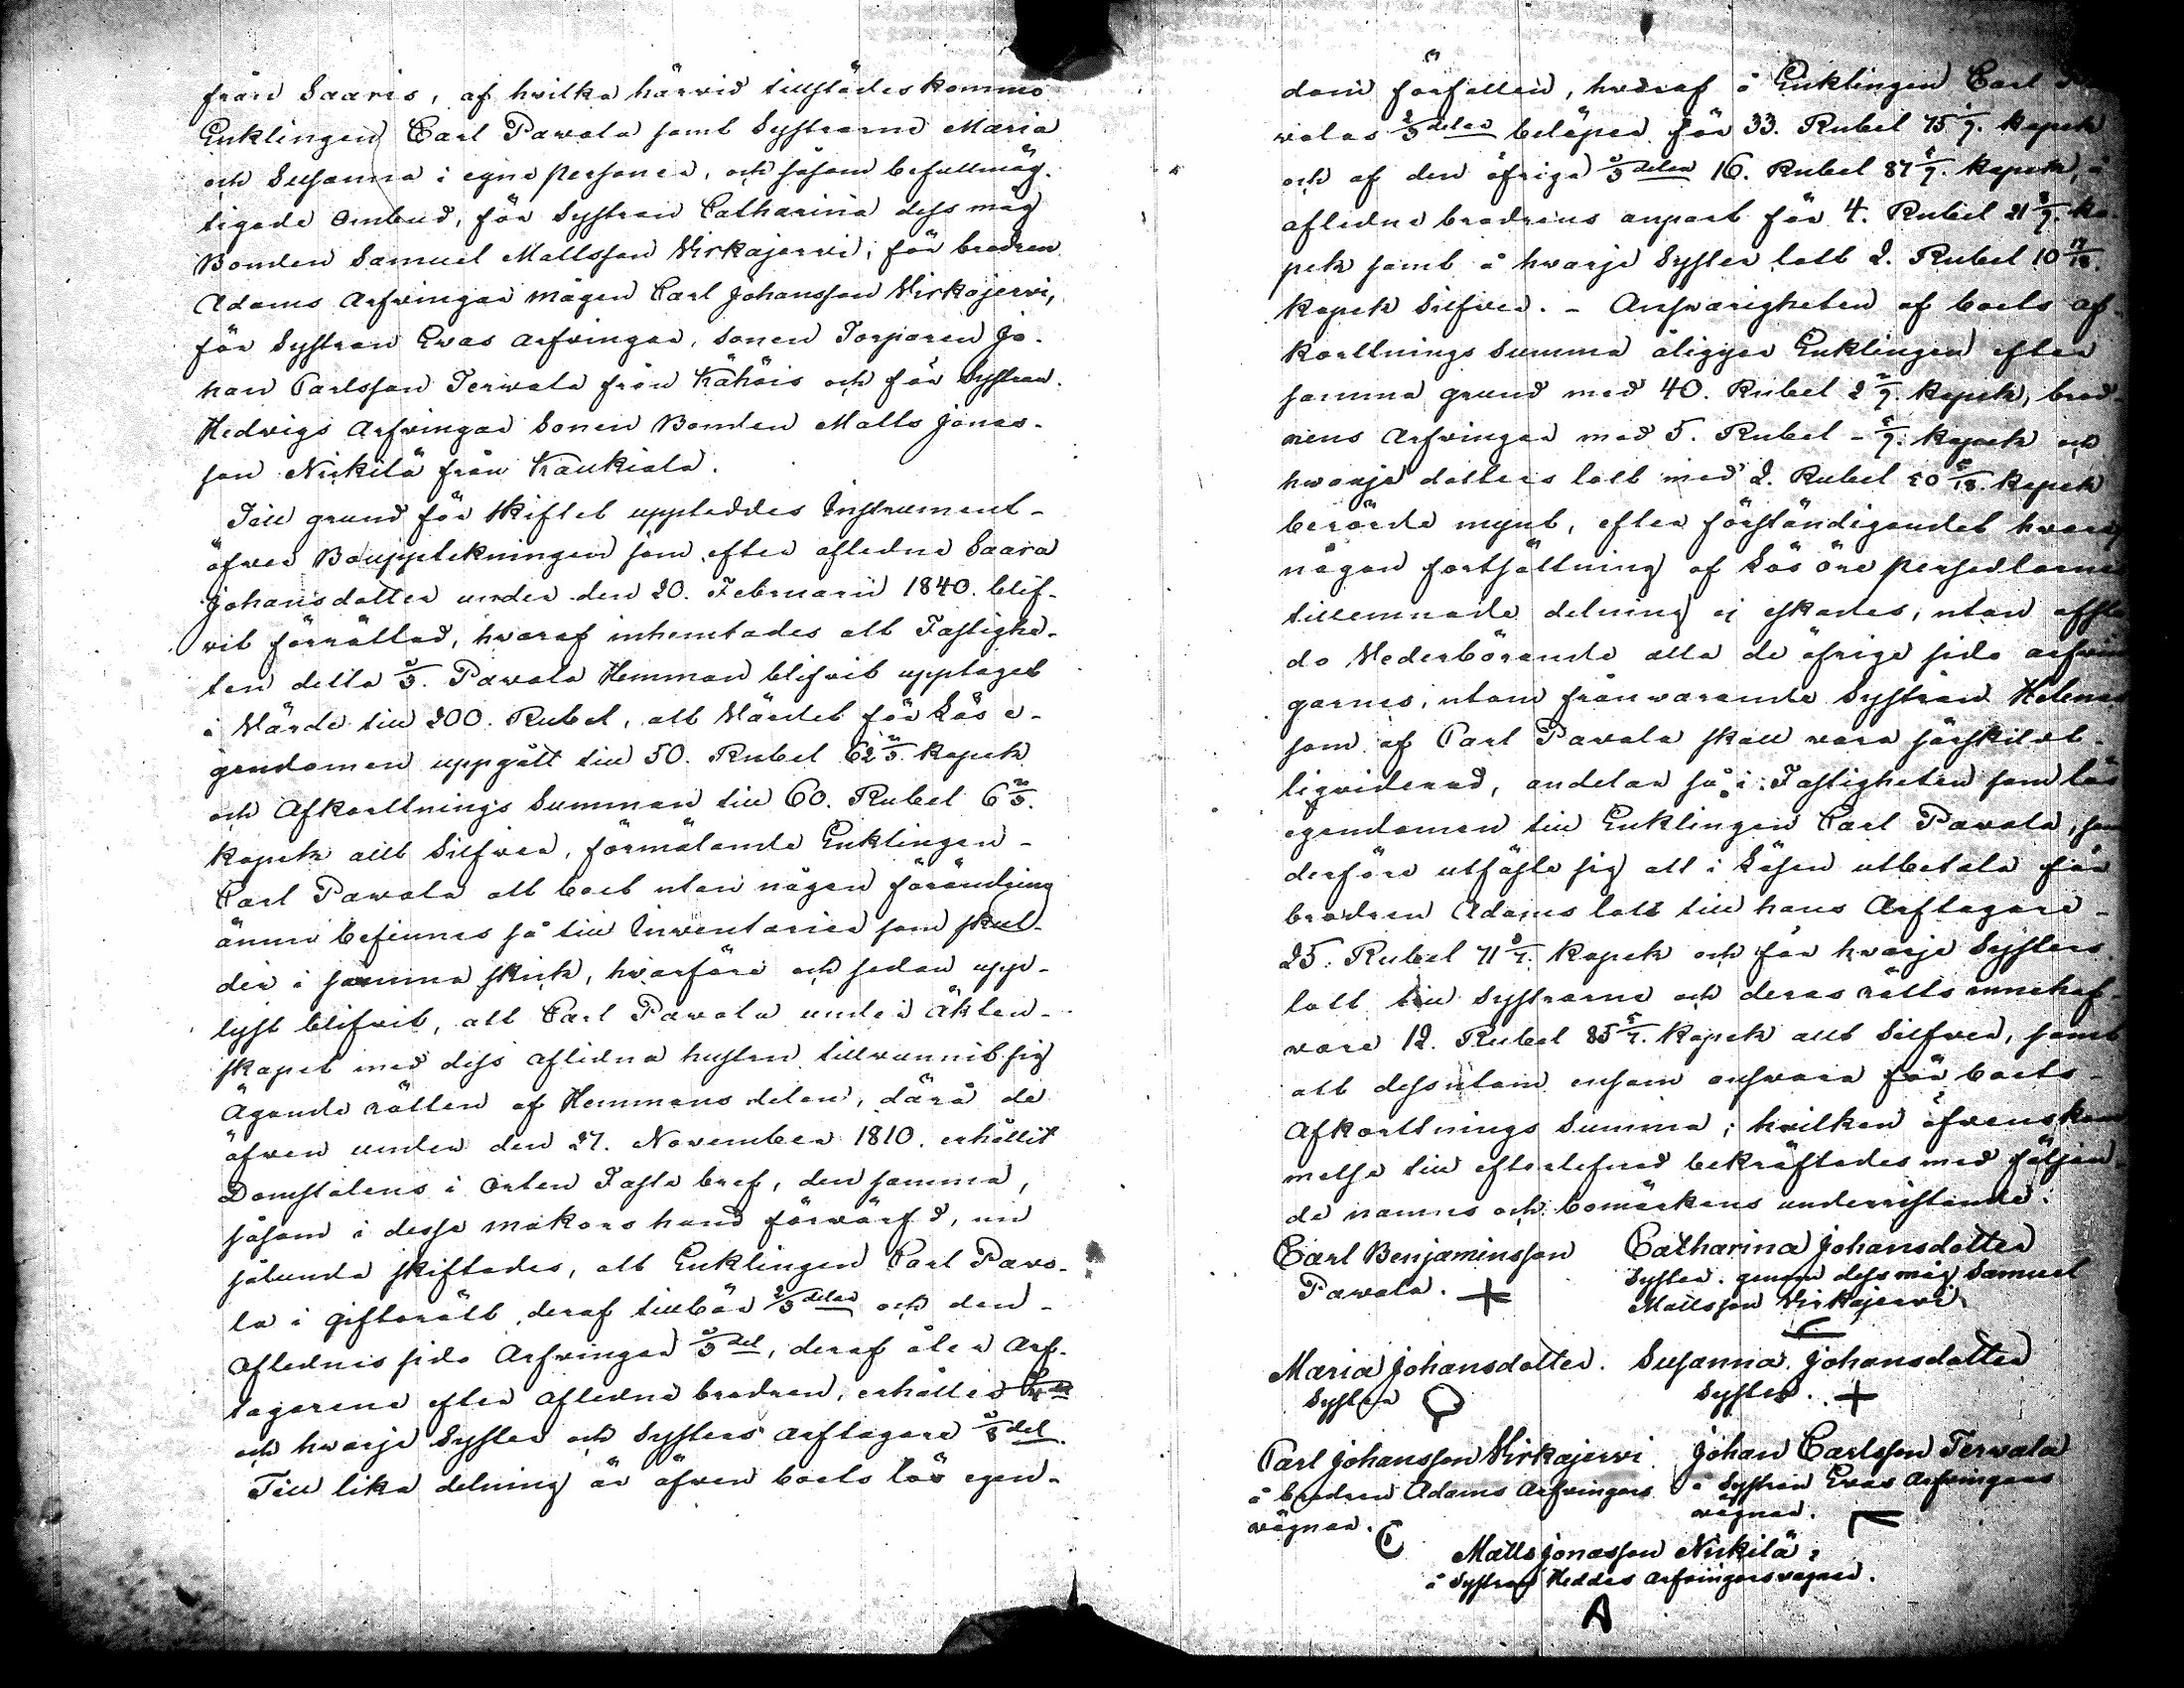 från Saaris, af hvilka härvid tillstädeskommo
Enklingen Carl Pawola samt Systrarne Maria
och Susanna i egne personer, och såsom befullmäg-
tigade Ombud, för Systran Catharina dess måg
Bonden Samuel Mattsson Wirkajerwi, för brodren
Adams Arfvingar mågen Carl Johansson Wirkajerwi,
för Systran Evas arfvingar, sonen Torparen Jo-
han Carlsson Terwala från Kähöis och för Systran
Hedvigs Arfvingar Sonen Bonden Matts Jonas-
son Nickilä från Kaukiala.
Till grund för skiftet uppteddes Instrument
öfver Bouppteckningen som efter aflidne Saara
Johansdotter under den 20. Februarii 1840. blif-
vit förrättad, hvaraf inhemtades att Fastighe-
ten detta 1/3. Pawola Hemman blifvit upptaget
i Wärde till 200. Rubel, att Wärdet för Lös e-
gendomen uppgått till 50. Rubel 62 2/3. kopek
och Afkortnings Summan till 60. Rubel 6 2/3.
kopek allt Silfver, förmälande Enklingen
Carl Pawola att boet utan någon förändring
ännu befinnes så till Inventarier som skul-
der i samma skick, hvarföre och sedan upp-
lyst blifvit, att Carl Pawola under Äkten-
skapet med dess aflidna hustru tillvunnit sig
Ägande rätten af Hemmans delen, därå de
äfven under den 27. November 1810. erhållit
Domstolens i Orten Fasta bref, den samma,
såsom i desse makars hand förvärfd, nu
sålunda skiftades, att Enklingen Carl Pawo-
la i giftorätt deraf tillbör 2/3 delar och den
Aflednis sido Arfvingar 1/3 del, deraf åter Arf-
tagarena efter Afledne brodren, erhåller 1/4 del
och hvarje Syster och Systers arftagare 1/8 del.
Till lika delning är äfven boets lös egen-
dom förfallen, hvaraf å Enklingen Carl Pa
wolas 2/3 delar belöper för 33. Rubel 75 1/9. kopek
och af den öfriga 1/3 delen 16. Rubel 87 5/9. kopek, å
aflidne brodrens anpart för 4. Rubel 21 8/9. ko-
pek samt å hvarje Syster lott 2. Rubel 10 17/18.
kopek Silfver. - Answarigheten af boets af-
kortnings Summa åligger Enklingen efter
samma grund med 40. Rubel 4 4/9. kopek, brod-
rens Arfvingar med 5. Rubel - 5/9. kopek och
hwarje dotters lott med 2. Rubel 50 5/18. kopek
berörde mynt, efter förständigandet hvar
någon fortsättning af Lösöre persedlarnes
tillemnade delning ej eskades, utan afsto
do Wederbörande alla de öfrige sido arfvin
garnes, utom frånvarande Systran Helenas
som af Carl Pawola skall vara särskilt
liqviderad, andelar så i Fastigheten som lös
egendomen till Enklingen Carl Pawola, som
derföre utfäste sig att i Lösen utbetala för
brodren Adams lott till hans Arftagare
25. Rubel 71 3/7. kopek och för hvarje Systers
lott till Systrarne och deras rätts innehaf-
vare 12. Rubel 85 5/7. kopek allt Silfver, samt
att dessutom ensam ansvara för boets
Afkortnings Summa; hvilken öfverskom
melse till efterlefnad bekräftades med följan-
de namns och bomärkens underristande.
Carl Benjaminsson
Pawola. +
Catharina Johansdotter
Syster. genom dess måg Samuel
Mattsson Wirkajerwi.
Maria Johansdotter.
Syster
Susanna Johansdotter
Syster. +
Carl Johansson Wirkajerwi
å brodren Adams Arfvingars
wägnar.
Johan Carlsson Terwala
å Systran Evas Arfvingars
wägnar.
Matts Jonasson Nickilä:
å Systran Heddas Arfvingars wägnar.
A